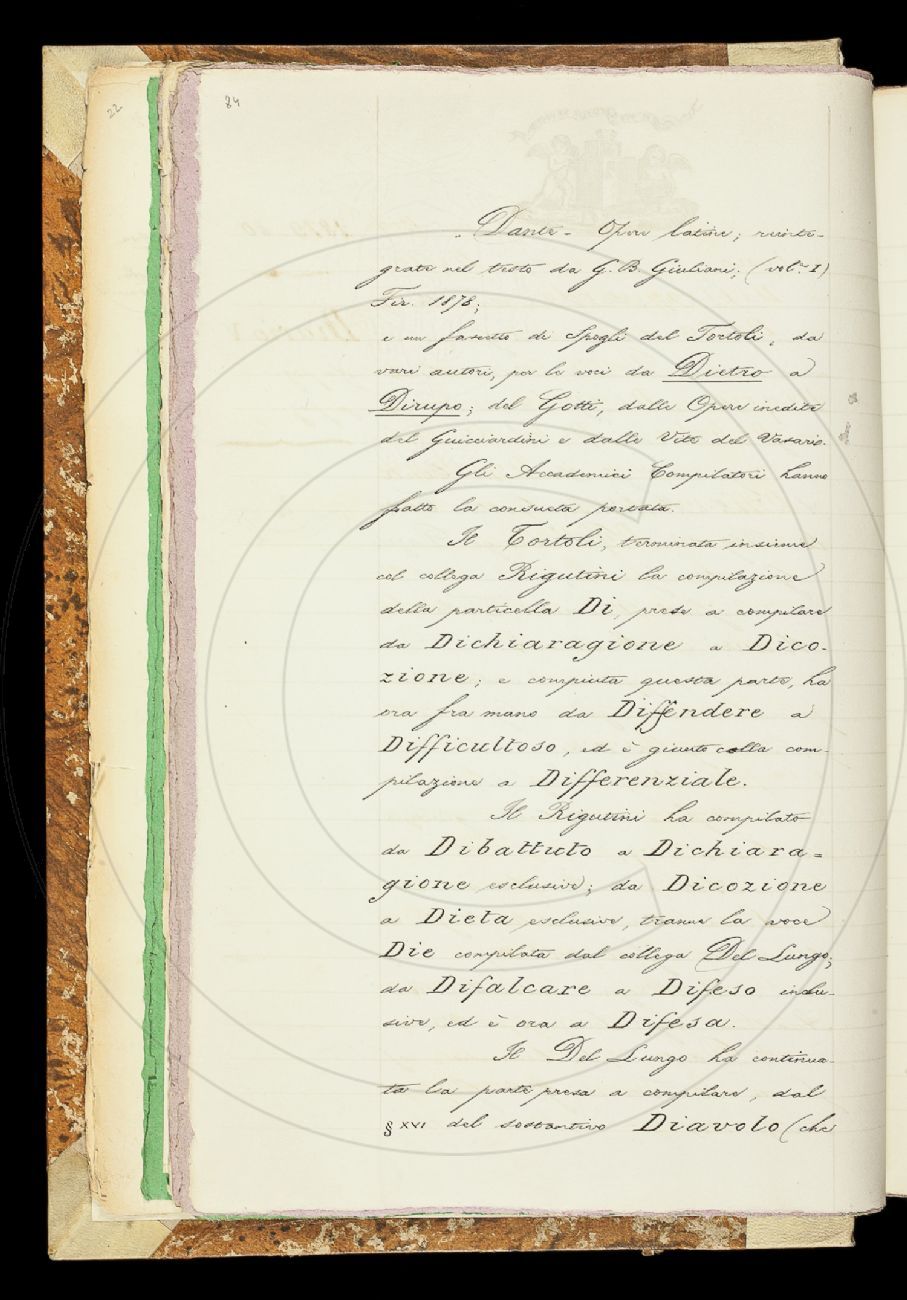 22
84
. Dante - Opere latine; reinte-
grate nel testo da G. B. Giuliani; (vol.e I)
Fir. 1878;
e un fascetto di Spogli del Tortoli, da
varî autori, per le voci da Dietro a
Dirupo; del Gotti, dalle Opere inedite
del Guicciardini e dalle Vite del Vasari.
Gli Accademici Compilatori hanno
fatto la consueta portata.
Il Tortoli, terminata insieme
col collega Rigutini la compilazione
della particella Di, prese a compilare
da Dichiaragione a Dico-
zione; e compiuta questa parte, ha
ora fra mano da Diffendere a
Difficultoso, ed è giunto colla com-
pilazione a Differenziale.
Il Rigutini ha compilato
da Dibattuto a Dichiara=
gione esclusive; da Dicozione
a Dieta esclusive, tranne la voce
Die compilata dal collega Del Lungo;
da Difalcare a Difeso inclu-
sive, ed è ora a Difesa.
Il Del Lungo ha continua-
ta la parte presa a compilare, dal
§ XVI del sostantivo Diavolo (che